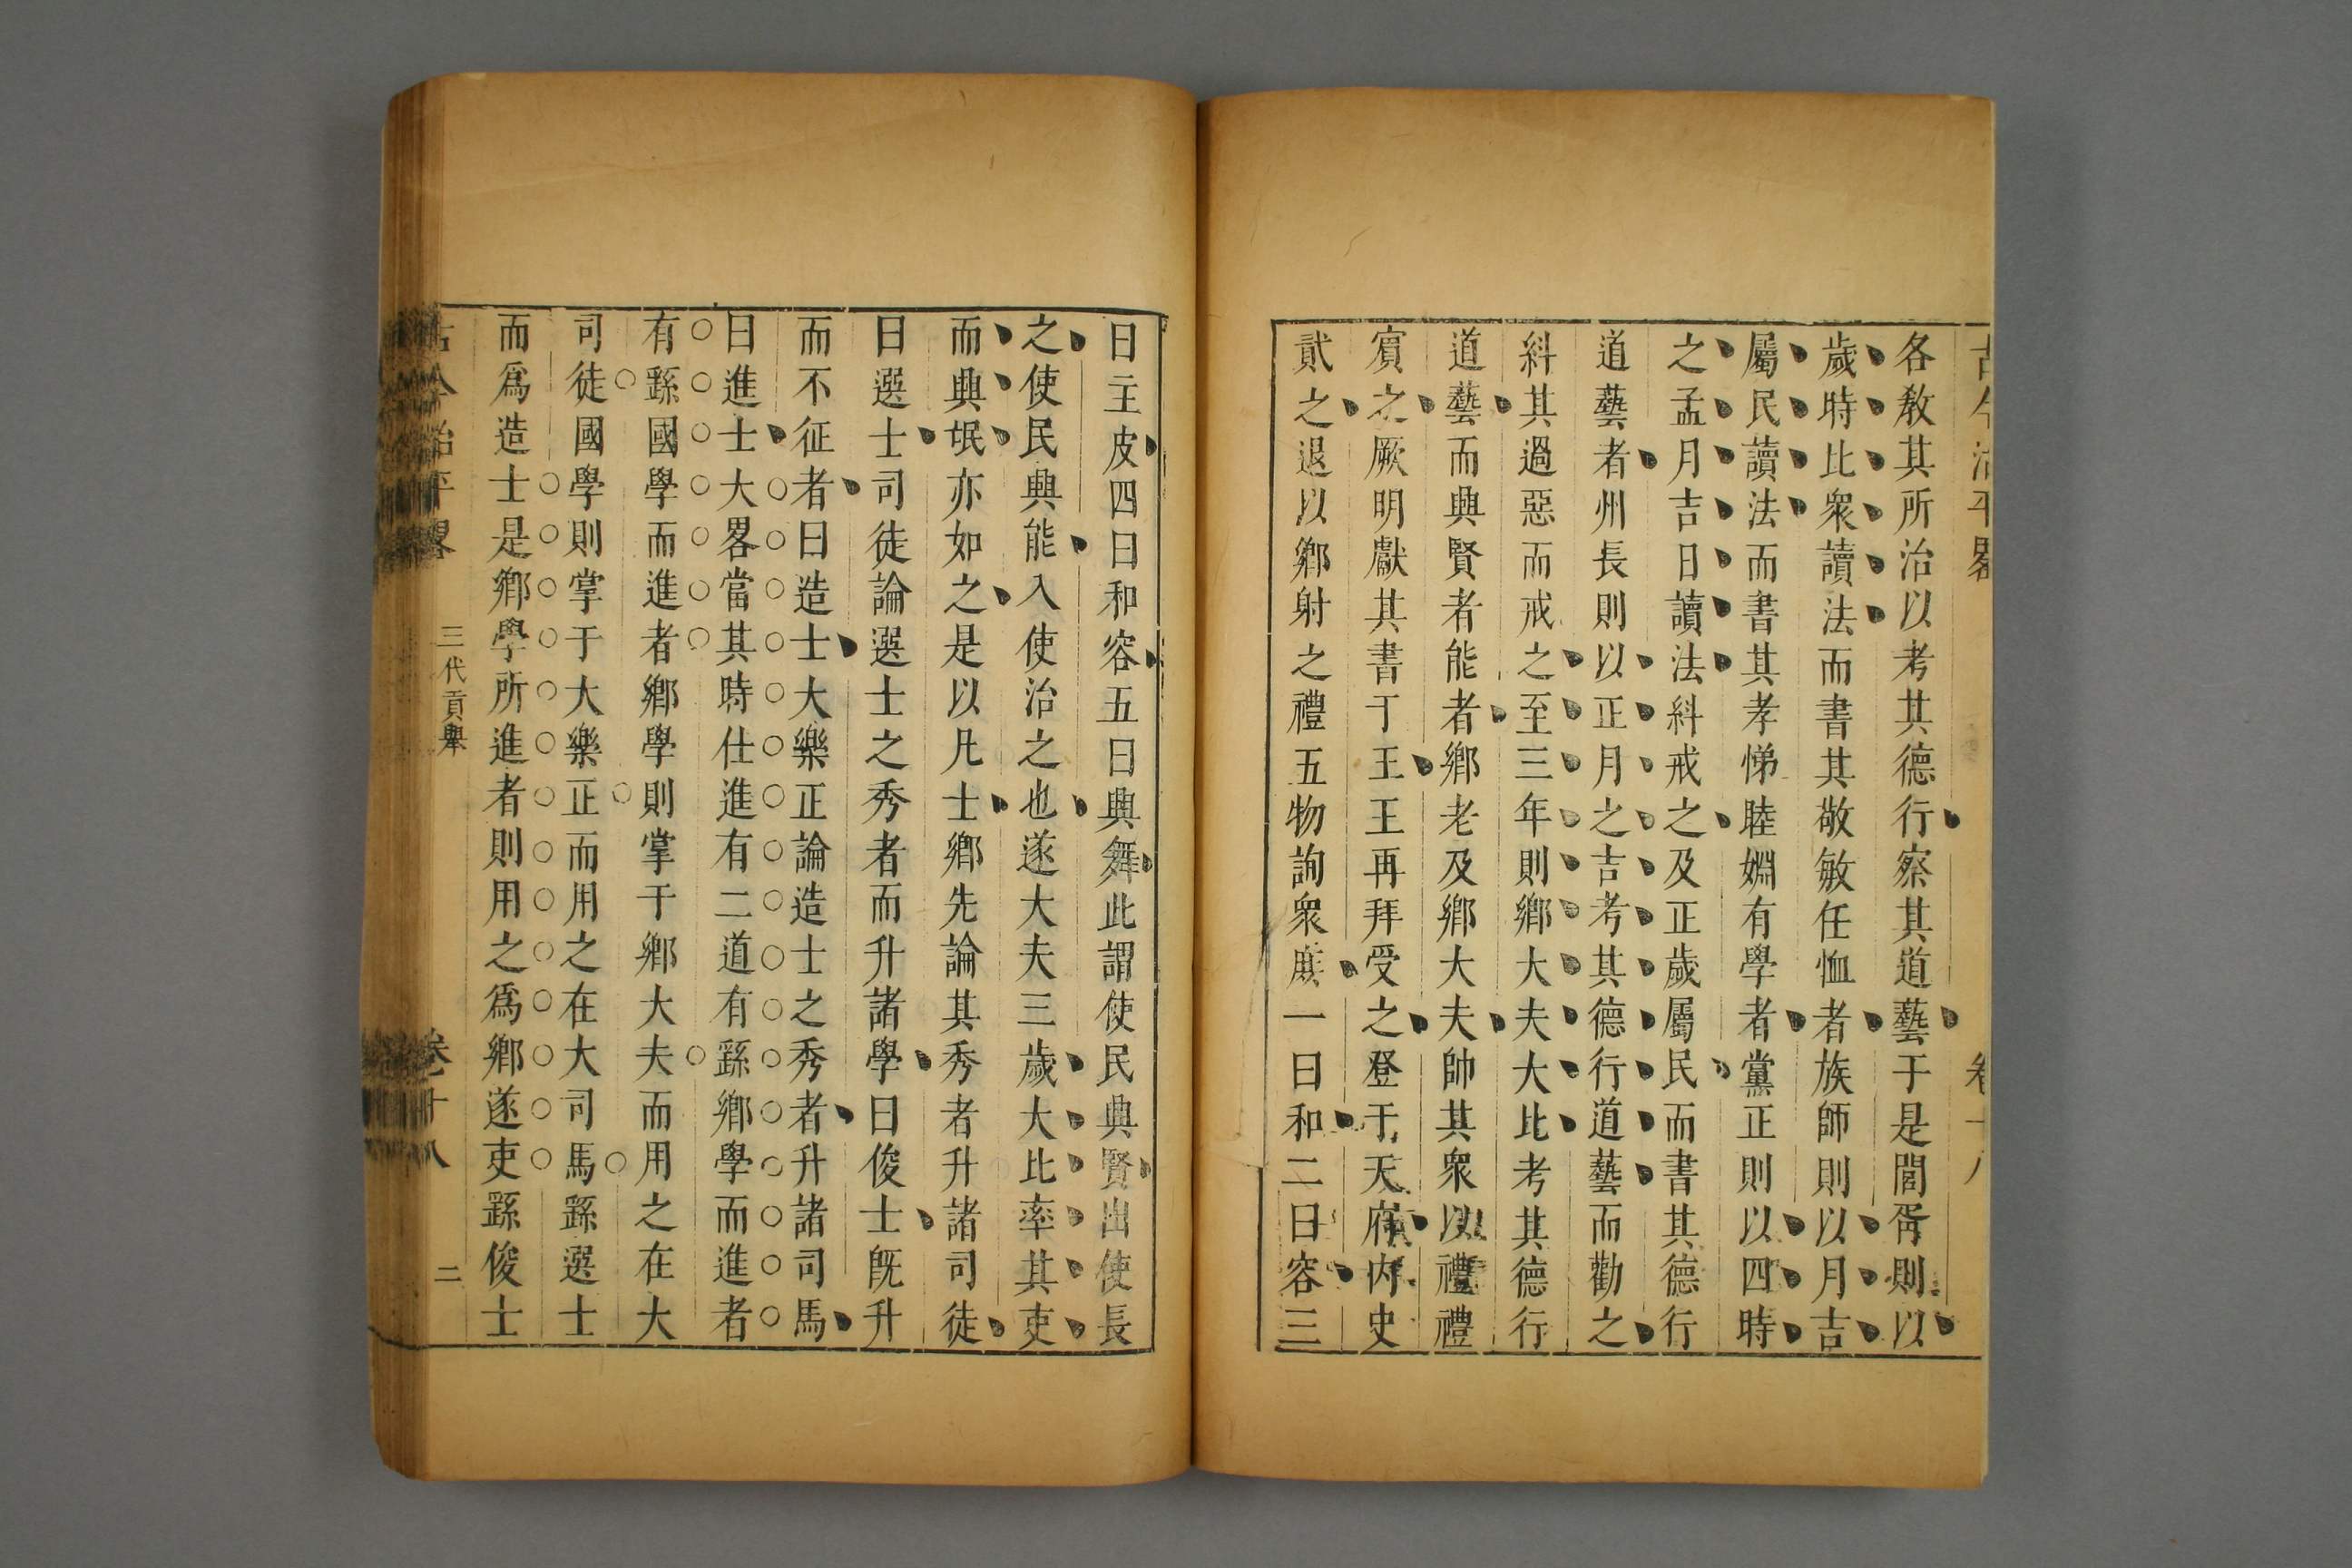 古今治平畧 卷十八
各敎其所治以考其德行察其道藝于是閭胥則以
歲時比衆讀法而書其敬敏任恤者族師則以月吉
屬民讀法而書其孝悌睦婣有學者黨正則以四時
之孟月吉日讀法糾戒之及正歲屬民而書其德行
道藝者州長則以正月之吉考其德行道藝而勸之
糾其過惡而戒之至三年則鄉大夫大比考其德行
道藝而興賢者能者鄉老及鄉大夫帥其衆以禮禮
賓之厥明獻其書于王王再拜受之登于天府内史
貳之退以鄉射之禮五物詢衆庶一曰和二曰容三
曰主皮四曰和容五曰興舞此謂使民興賢出使長
之使民興能入使治之也遂大夫三歲大比率其吏
而興氓亦如之是以凡士鄉先論其秀者升諸司徒
曰選士司徒論選士之秀者而升諸學曰俊士旣升
而不征者曰造士大樂正論造士之秀者升諸司馬
曰進士大畧當其時仕進有二道有繇鄉學而進者
有繇國學而進者鄉學則掌于鄉大夫而用之在大
司徒國學則掌于大樂正而用之在大司馬繇選士
而爲造士是鄉學所進者則用之爲鄉遂吏繇俊士
古今治平畧 三代貢舉 卷十八 二